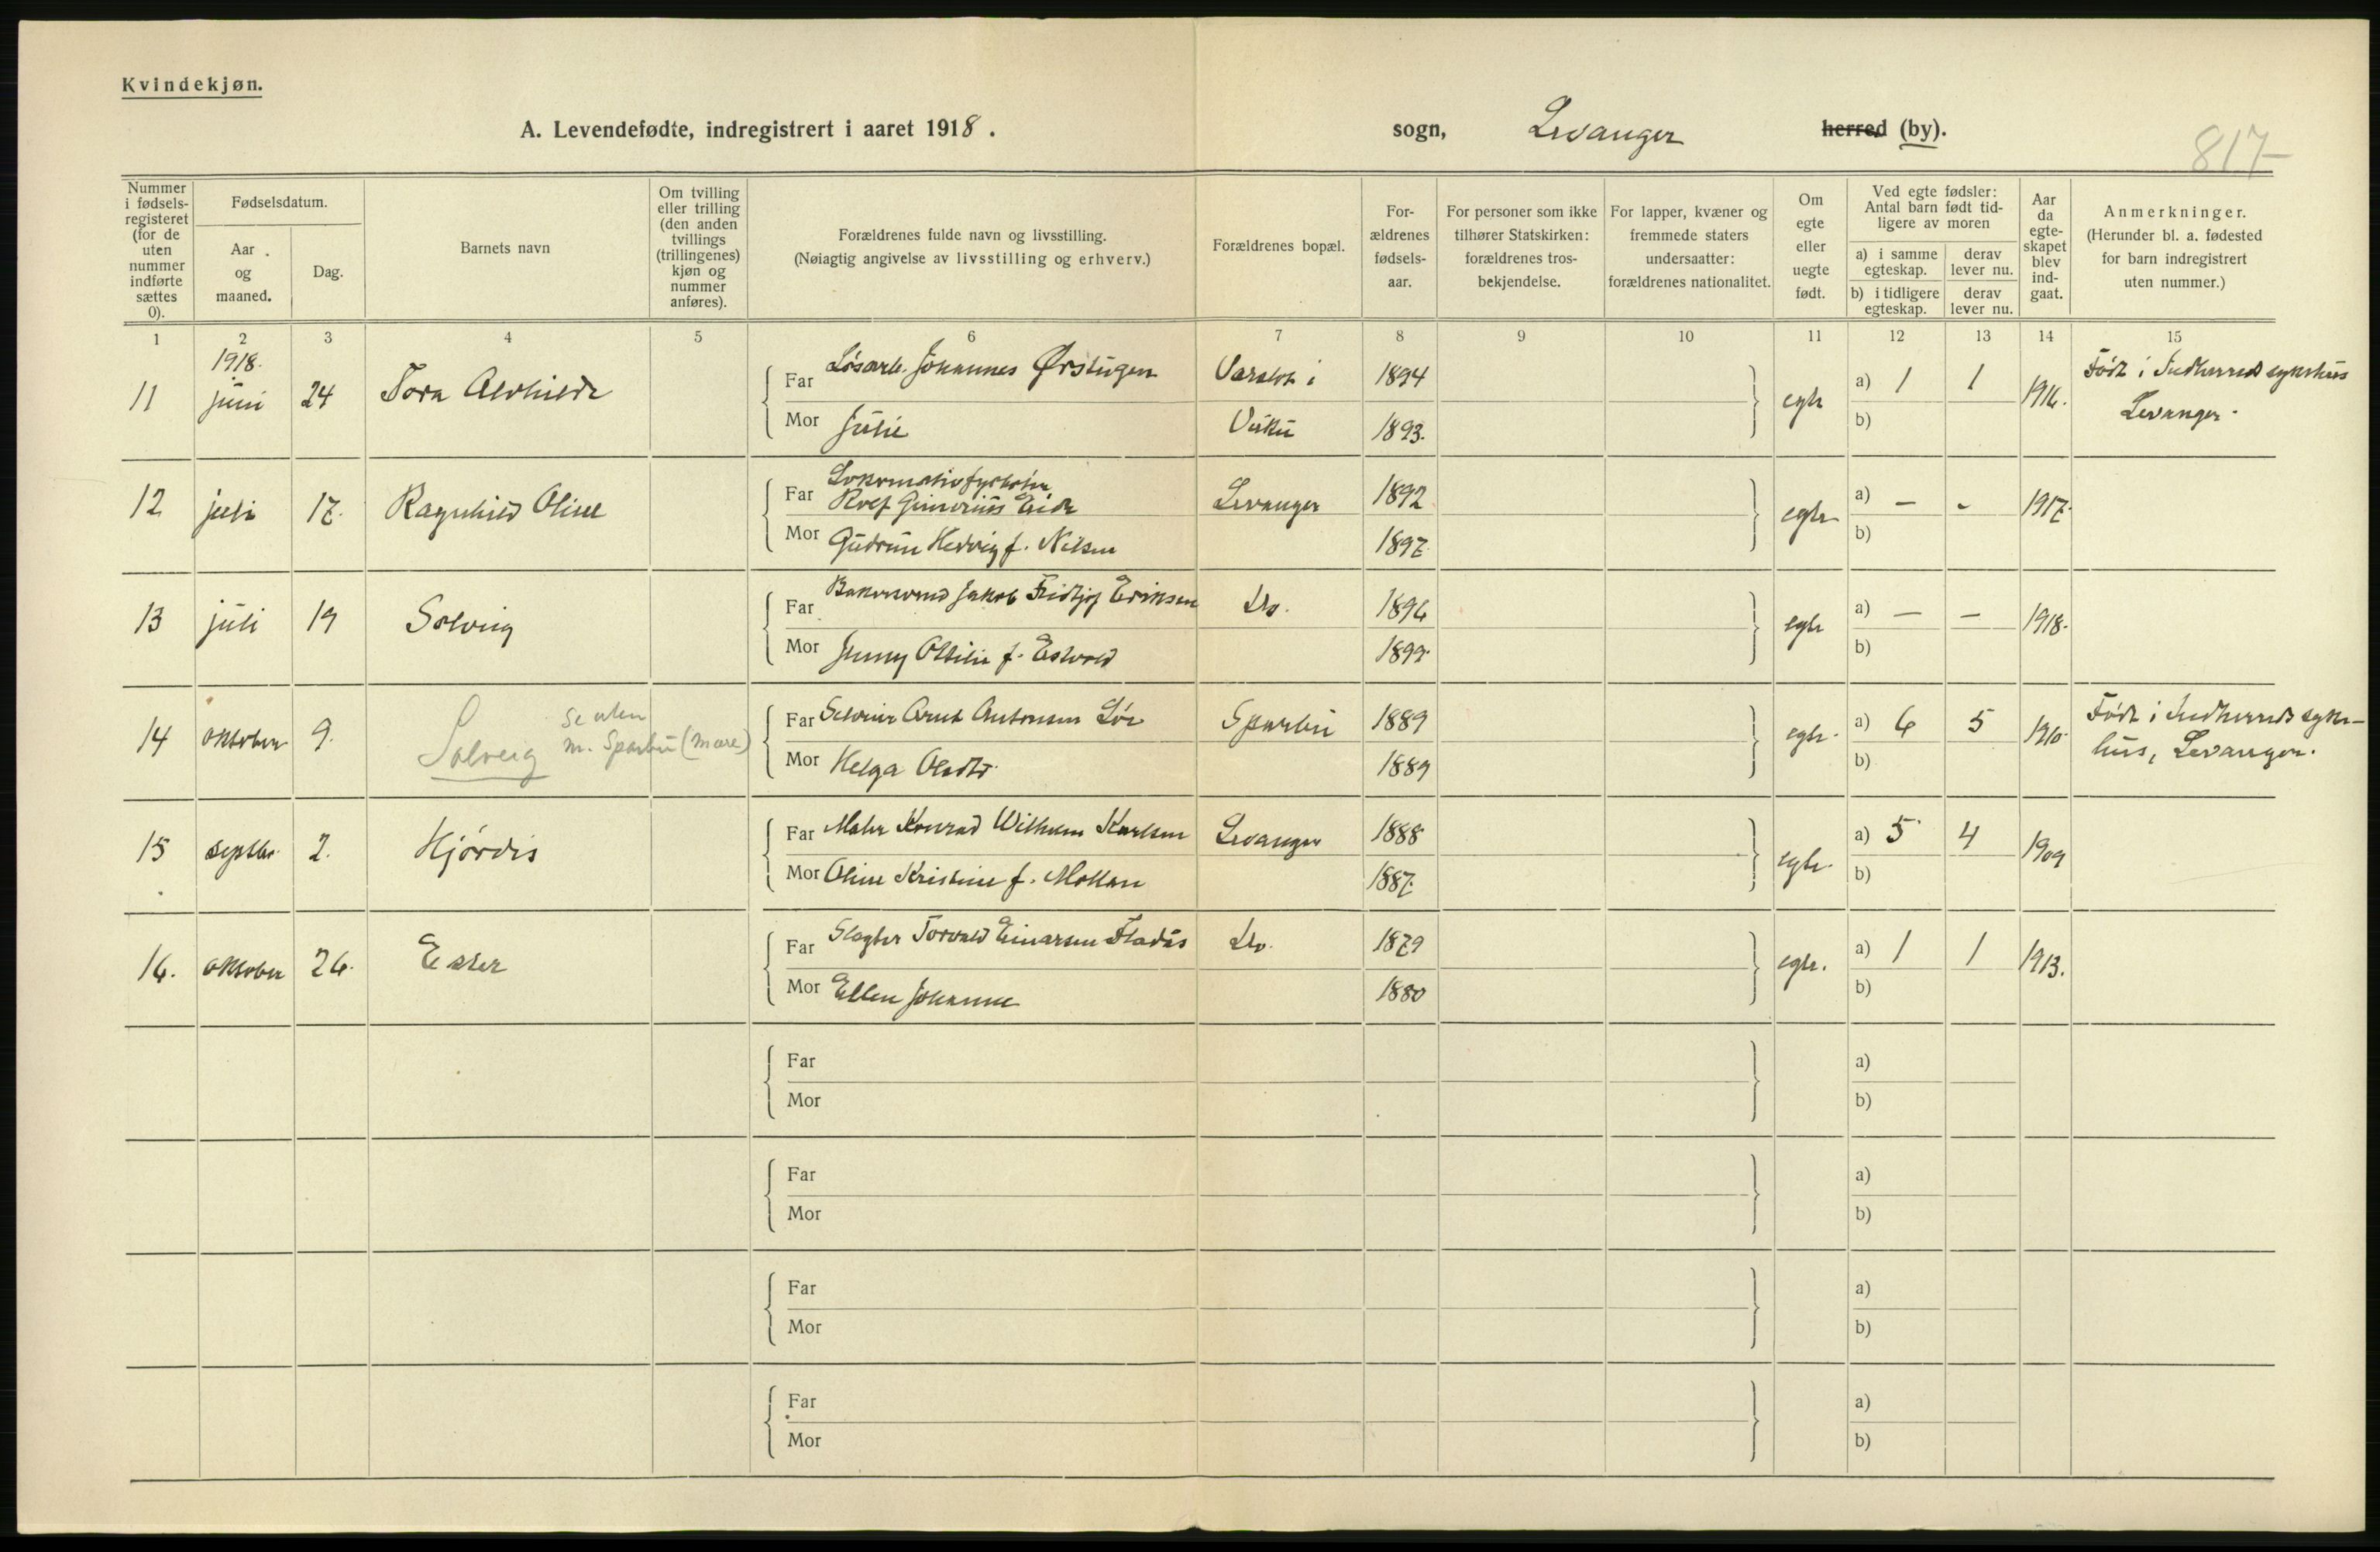 Kvindekjøn.
A. Levendefødte, indregistrert i aaret 1918. sogn, Levanger herred (by).
817
Nummer i fødselsregisteret (for de uten nummer indførte sættes 0).
Fødselsdatum.
Aar og maaned.
Dag.
Barnets navn
Om tvilling eller trilling (den anden tvillings (trillingenes) kjøn og nummer anføres).
Forældrenes fulde navn og livsstilling.
(Nøiagtig angivelse av livsstilling og erhverv.)
Forældrenes bopæl.
Forældrenes fødselsaar.
For personer som ikke tilhører Statskirken: forældrenes trosbekjendelse.
For lapper, kvæner og fremmede staters undersaatter: forældrenes nationalitet.
Om egte eller uegte født.
Ved egte fødsler: Antal barn født tidligere av moren
a) i samme egteskap.
derav lever nu.
b) i tidligere egteskap.
derav lever nu.
Aar da egteskapet blev indgaat.
Anmerkninger.
(Herunder bl. a. fødested for barn indregistrert uten nummer.)
1 2 3 4 5 6 7 8 9 10 11 12 13 14 15
1918.
11 juni 24 Tora Alvhilde Far Løsarb. Johannes Ørstugen Værdal i 1894 egte a) 1 1 1916. Født i Indherreds sykehus
Mor Julie Vuku 1893. b) Levanger.
12 juli 17. Ragnhild Oline Far Lokomotivfyrbøter
Rolf Eide Levanger 1892 egte a) – – 1917.
Mor Gudrun Hedvig f. Nilsen 1897. b)
13 juli 19 Solveig Far Bakersvend Jakob Fridtjof Eriksen Do. 1896 egte a) – – 1918.
Mor Jenny Ottilie f. 1899. b)
14 oktober 9. Solveig m. Sparbu (mære) Far Arnt Antonsen Sparbu 1889 egte. a) 6 5 1910. Født i Indherreds syke-
Mor Helga 1889 b) hus, Levanger.
15 septbr. 2. Hjørdis Far Maler Konrad Wilhelm Karlsen Levanger 1888 egte. a) 5 4 1909
Mor Oline Kristine f. 1887. b)
16. oktober 26. Ester Far Slagter Torvald Einarsen Do. 1879 egte. a) 1 1 1913.
Mor Ellen Johanne 1880 b)
Far a)
Mor b)
Far a)
Mor b)
Far a)
Mor b)
Far a)
Mor b)